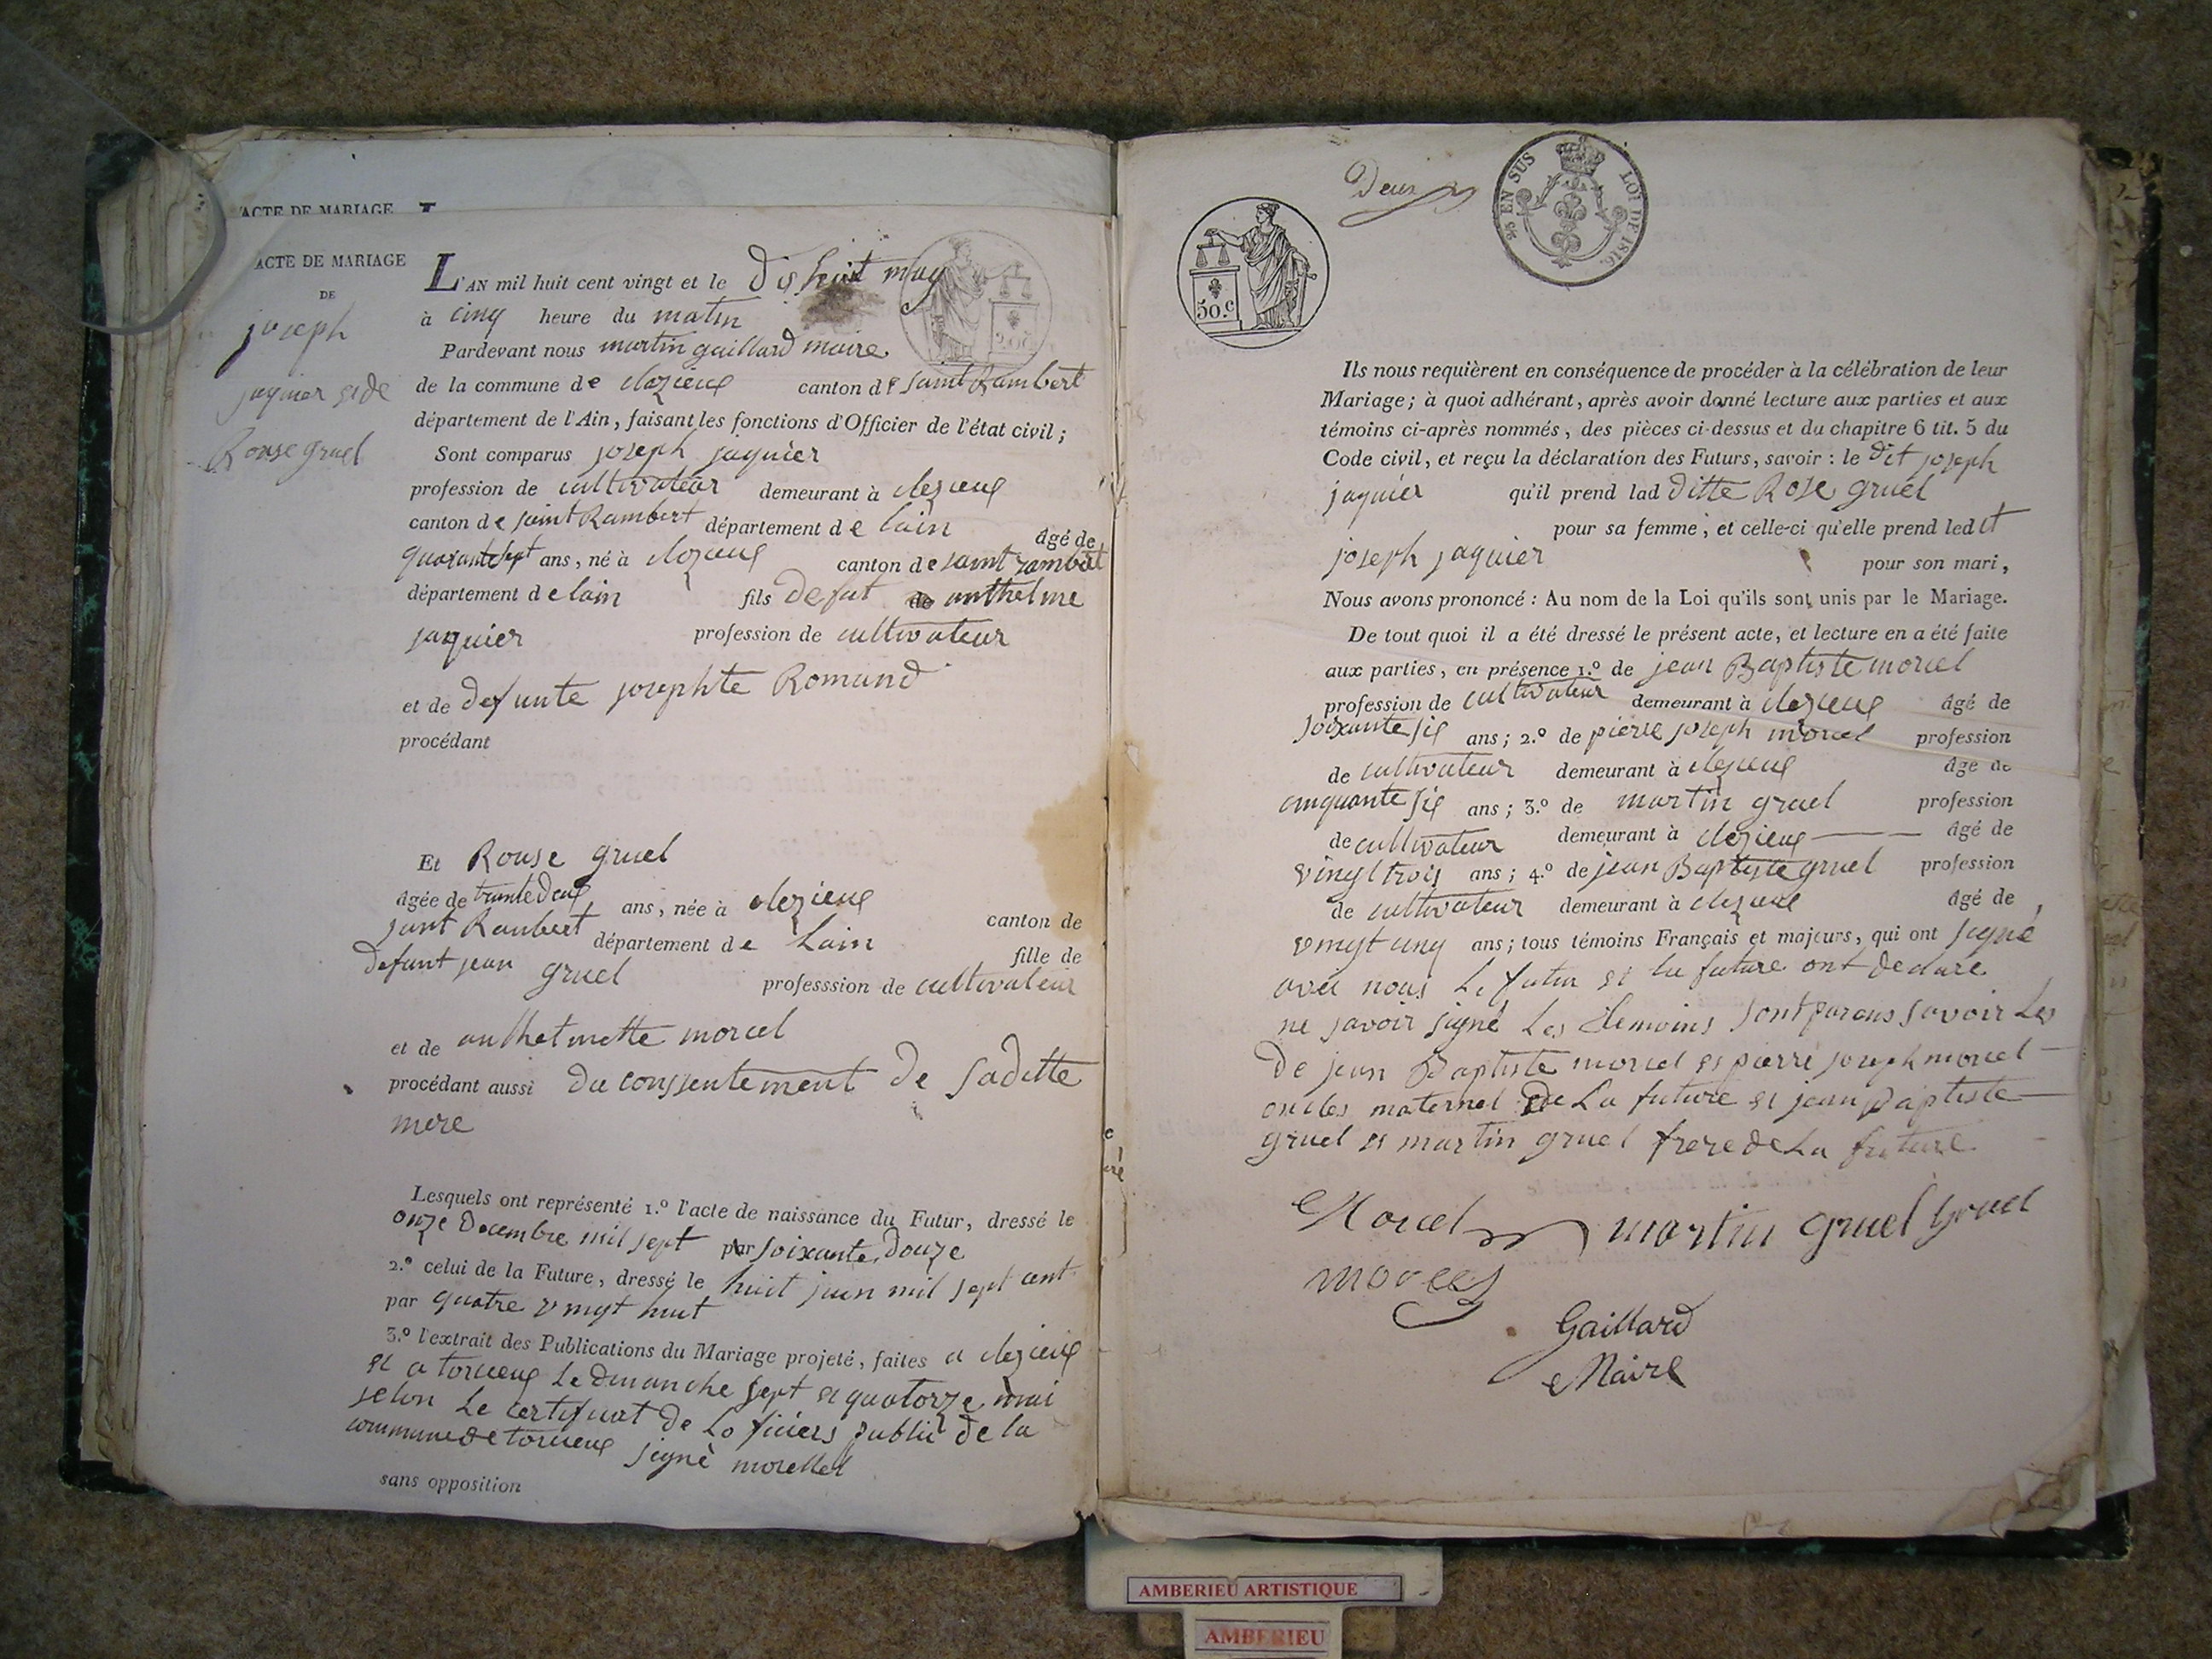 ACTE DE MARIAGE
ACTE DE MARIAGE
DE
joseph
jaquier et de
Rouse gruel
L'AN mil huit cent vingt et le dis huit may
à cinq heure du matin
Pardevant nous martin gaillard maire
de la commune de clezieux canton de saint Rambert
département de l'Ain, faisant les fonctions d'Officier de l'état civil;
Sont comparus joseph jaquier
profession de cultivateur demeurant à clezieux
canton de saint Rambert département de lain âgé de
quarante sept ans, né à clezieux canton de saint rambert
département de lain fils de fut anthelme
jaquier profession de cultivateur
et de defunte josephte Romand
procédant
Et Rouse gruel
âgée de trante deux ans, née à clezieux canton de
saint Rambert département de Lain fille de
defunt jean gruel professsion de cultivateur
et de anthelmette morcel
procédant aussi du conssentement de saditte
mere
Lesquels ont représenté 1.º l'acte de naissance du Futur, dressé le
onze decembre mil sept par soixante douze
2.º celui de la Future, dressé le huit juin mil sept cent
par quatre vingt huit
3.º l'extrait des Publications du Mariage projeté, faites a clezieux
et a torcieux Le dimanche sept et quatorze mai
selon Le certificat de Lo ficiers public de la
commune de torcieux signé morellet
sans opposition
Deux
95 EN SUS LOI DE 1816
50.c
Ils nous requièrent en conséquence de procéder à la célébration de leur
Mariage; à quoi adhérant, après avoir donné lecture aux parties et aux
témoins ci-après nommés, des pièces ci-dessus et du chapitre 6 tit. 5 du
Code civil, et reçu la déclaration des Futurs, savoir: le dit joseph
jaquier qu'il prend lad ditte Rose gruel
pour sa femme, et celle-ci qu'elle prend ledit
joseph jaquier pour son mari,
Nous avons prononcé: Au nom de la Loi qu'ils sont unis par le Mariage.
De tout quoi il a été dressé le présent acte, et lecture en a été faite
aux parties, en présence 1.º de jean Baptiste morcel
profession de cultivateur demeurant à clezieux âgé de
soixante six ans; 2.º de pierre joseph morcel profession
de cultivateur demeurant à clezieux âgé de
cinquante six ans; 3.º de martin gruel profession
de cultivateur demeurant à clezieux âgé de
vingt trois ans; 4.º de jean Baptiste gruel profession
de cultivateur demeurant à clezieux âgé de
vingt cinq ans; tous témoins Français et majeurs, qui ont signé
avec nous Le futur et la future ont declaré
ne savoir signé Les temoins sont parans savoir Les
De jean Baptiste morcel et pierre joseph morcel
oncles maternel de La future et jean Baptiste
gruel et martin gruel frere de La future
Morcel martin gruel Gruel
morcel
Gaillard
Maire
AMBERIEU ARTISTIQUE
AMBERIEU